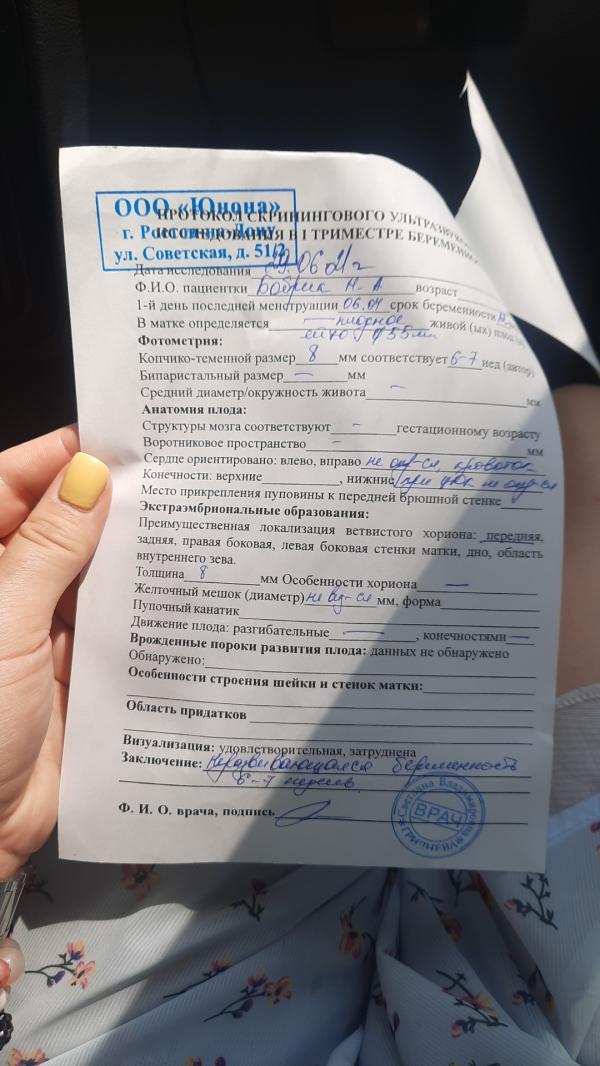 ООО «Юнона»
г. Ростов-на-Дону
ул. Советская, д. 51/2
ПРОТОКОЛ СКРИНИНГОВОГО
В I ТРИМЕСТРЕ
Дата исследования 29.06 21г
Ф.И.О. пациентки Бобрик Н. А возраст
1-й день последней менструации 06.04 срок беременности
В матке определяется — плодное живой (ых)
яйцо 55мм
Фотометрия:
Копчико-теменной размер 8 мм соответствует 6-7 нед (автор)
Бипаристальный размер — мм
Средний диаметр/окружность живота — мм
Анатомия плода:
Структуры мозга соответствуют - гестационному возрасту
Воротниковое пространство - мм
Сердце ориентировано: влево, вправо не опр-ся, кровоток
Конечности: верхние , нижние при цдк не опр-ся
Место прикрепления пуповины к передней брюшной стенке
Экстраэмбриональные образования:
Преимущественная локализация ветвистого хориона: передняя,
задняя, правая боковая, левая боковая стенки матки, дно, область
внутреннего зева.
Толщина 8 мм Особенности хориона —
Желточный мешок (диаметр) не виз-ся мм, форма
Пупочный канатик
Движение плода: разгибательные — , конечностями —
Врожденные пороки развития плода: данных не обнаружено
Обнаружено:
Особенности строения шейки и стенок матки:
Область придатков
Визуализация: удовлетворительная, затруднена
Заключение: Неразвивающаяся беременность
6-7 недель
Ф. И. О. врача, подпись
Светлана Владимировна
ВРАЧ